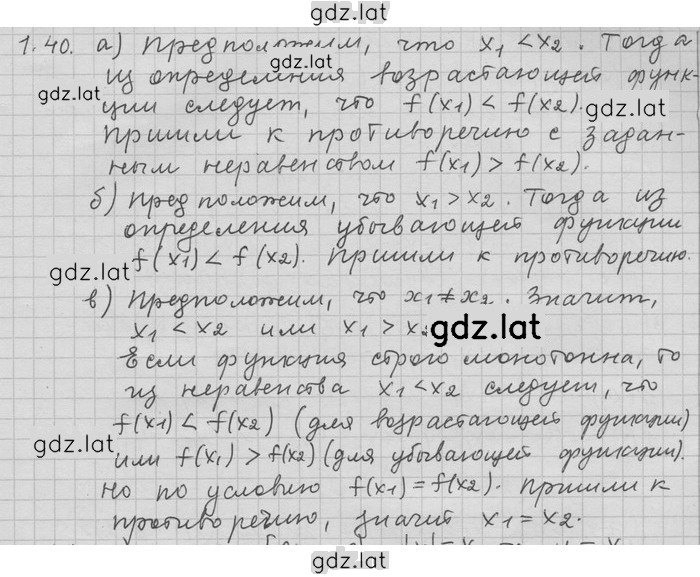 gdz.lat
1.40. а) Предположим, что x₁ < x₂. Тогда
из определения возрастающей функ-
gdz.lat
ции следует, что f(x₁) < f(x₂).
gdz.lat
Пришли к противоречию с задан-
ным неравенством f(x₁) > f(x₂).
б) Предположим, что x₁ > x₂. Тогда из
определения убывающей функции
f(x₁) < f(x₂). Пришли к противоречию.
gdz.lat
в) Предположим, что x₁ ≠ x₂. Значит,
x₁ < x₂ или x₁ > x₂
gdz.lat
Если функция строго монотонна, то
из неравенства x₁ < x₂ следует, что
f(x₁) < f(x₂) (для возрастающей функции)
gdz.lat
или f(x₁) > f(x₂) (для убывающей функции).
Но по условию f(x₁) = f(x₂). Пришли к
противоречию, значит x₁ = x₂.
gdz.lat